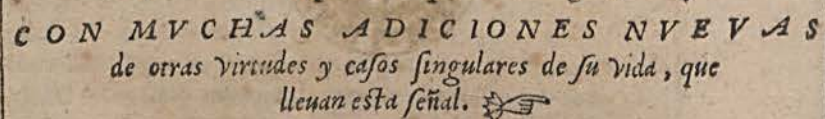 CON MVCHAS ADICIONES NVEVAS
de otras virtudes y casos singulares de su vida, que
lleuan esta señal. ☞